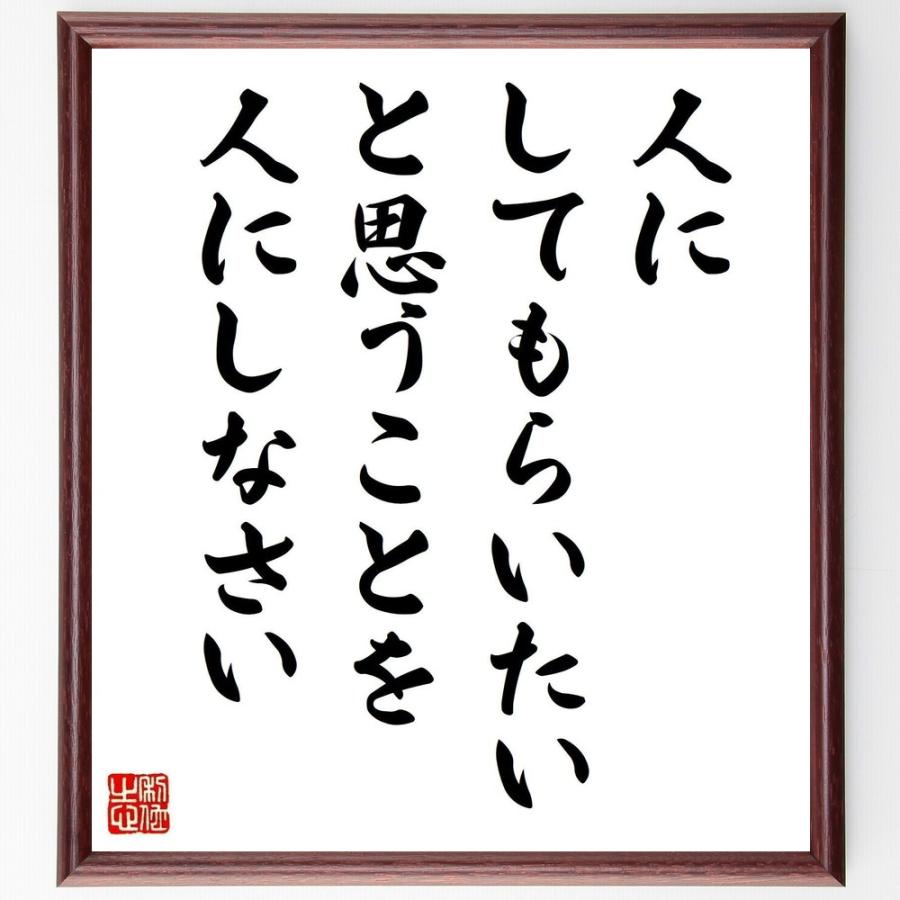 人に
してもらいたい
と思うことを
人にしなさい